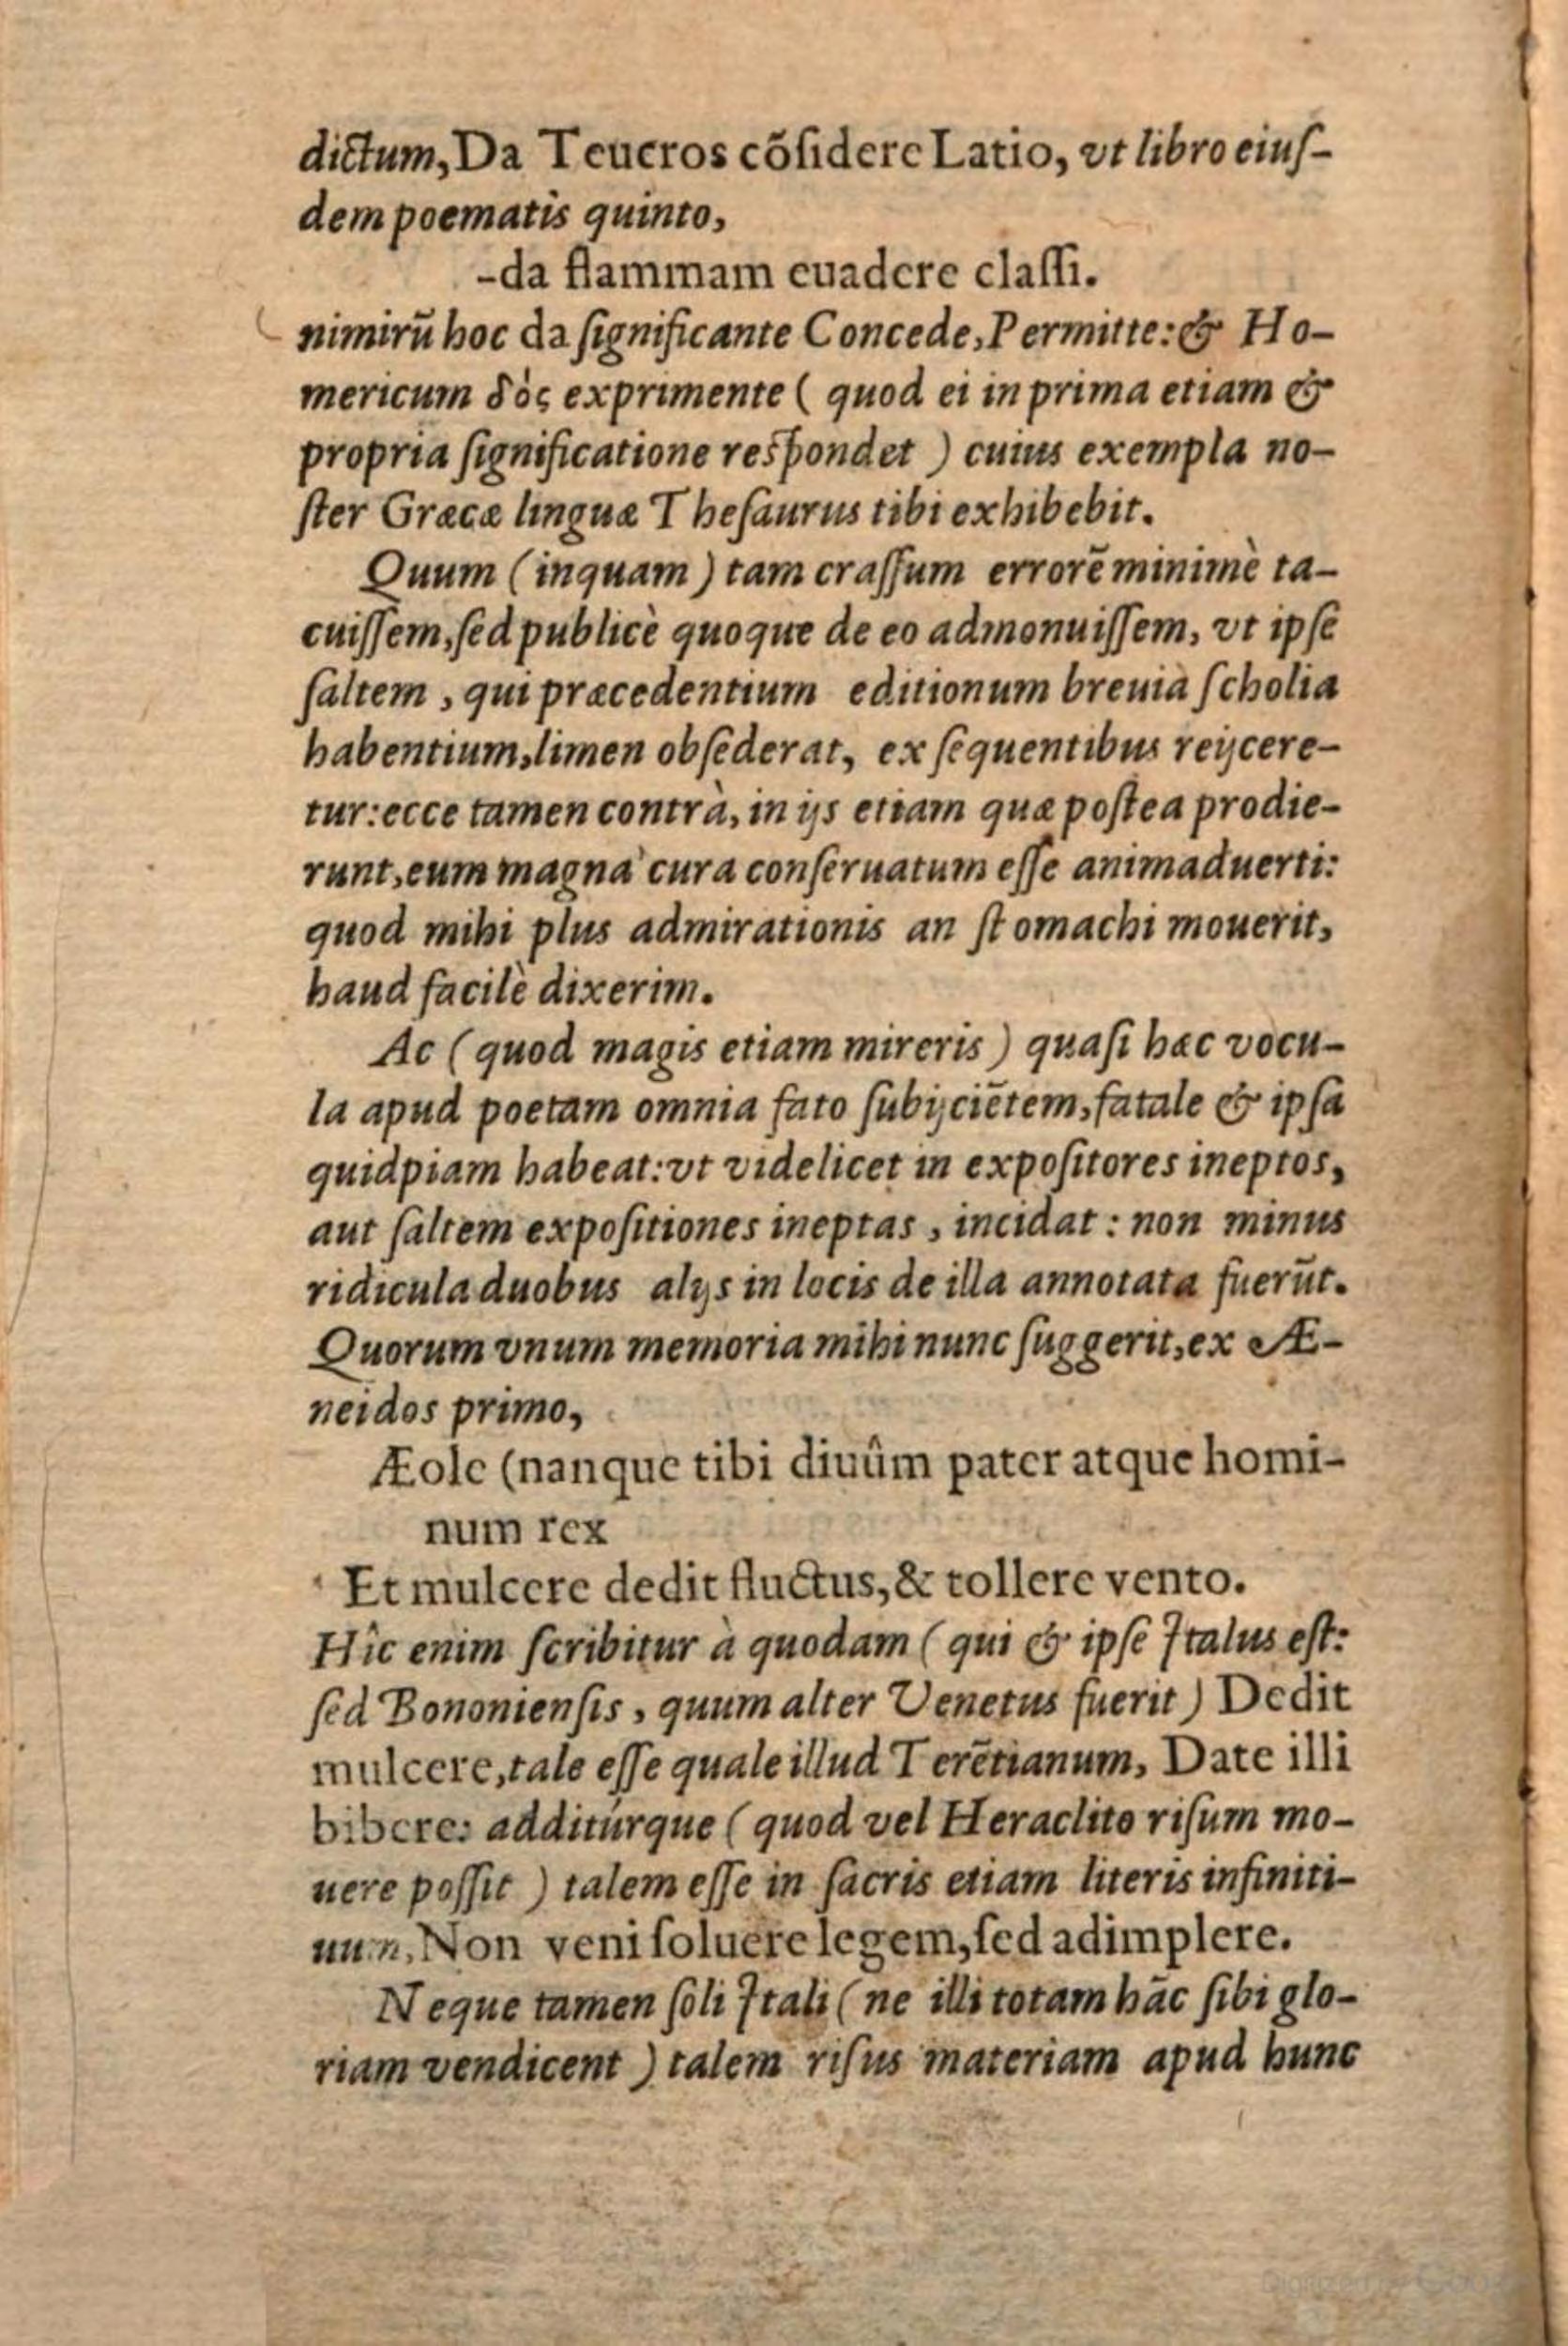 dictum, Da Teucros cõſidere Latio, vt libro eiuſ-
dem poematis quinto,
-da flammam euadere claſſi.
nimirũ hoc da ſignificante Concede, Permitte: & Ho-
mericum δὸς exprimente ( quod ei in prima etiam &
propria ſignificatione reſpondet ) cuius exempla no-
ſter Græcæ linguæ Theſaurus tibi exhibebit.
Quum (inquam) tam craſſum errorẽ minimè ta-
cuiſſem, ſed publicè quoque de eo admonuiſſem, vt ipſe
ſaltem , qui præcedentium editionum breuia ſcholia
habentium, limen obſederat, ex ſequentibus reijcere-
tur: ecce tamen contrà, in ijs etiam quæ poſtea prodie-
runt, eum magna cura conſeruatum eſſe animaduerti:
quod mihi plus admirationis an ſtomachi mouerit,
haud facilè dixerim.
Ac ( quod magis etiam mireris ) quaſi hæc vocu-
la apud poetam omnia fato ſubijciẽtem, fatale & ipſa
quidpiam habeat: vt videlicet in expoſitores ineptos,
aut ſaltem expoſitiones ineptas , incidat : non minus
ridicula duobus alijs in locis de illa annotata fuerũt.
Quorum vnum memoria mihi nunc ſuggerit, ex Æ-
neidos primo,
Æole (nanque tibi diuûm pater atque homi-
num rex
Et mulcere dedit fluctus, & tollere vento.
Hîc enim ſcribitur à quodam ( qui & ipſe Italus eſt:
ſed Bononienſis , quum alter Venetus fuerit ) Dedit
mulcere, tale eſſe quale illud Terẽtianum, Date illi
bibere: additúrque ( quod vel Heraclito riſum mo-
uere poſſit ) talem eſſe in ſacris etiam literis infiniti-
uum, Non veni ſoluere legem, ſed adimplere.
Neque tamen ſoli Itali ( ne illi totam hãc ſibi glo-
riam vendicent ) talem riſus materiam apud hunc